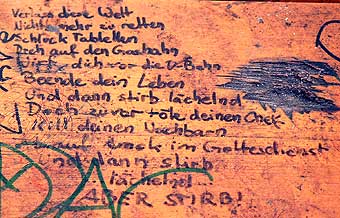 Verlass diese Welt
Nichts mehr zu retten
Schluck Tabletten
Dreh auf den Gashahn
Wirf dich vor die U-Bahn
Beende dein Leben
Und dann stirb lächelnd
Doch zuvor töte deinen Chef
Kill deinen Nachbarn
Lauf Amok im Gottesdienst
Und dann stirb
lächelnd...
ABER STIRB!